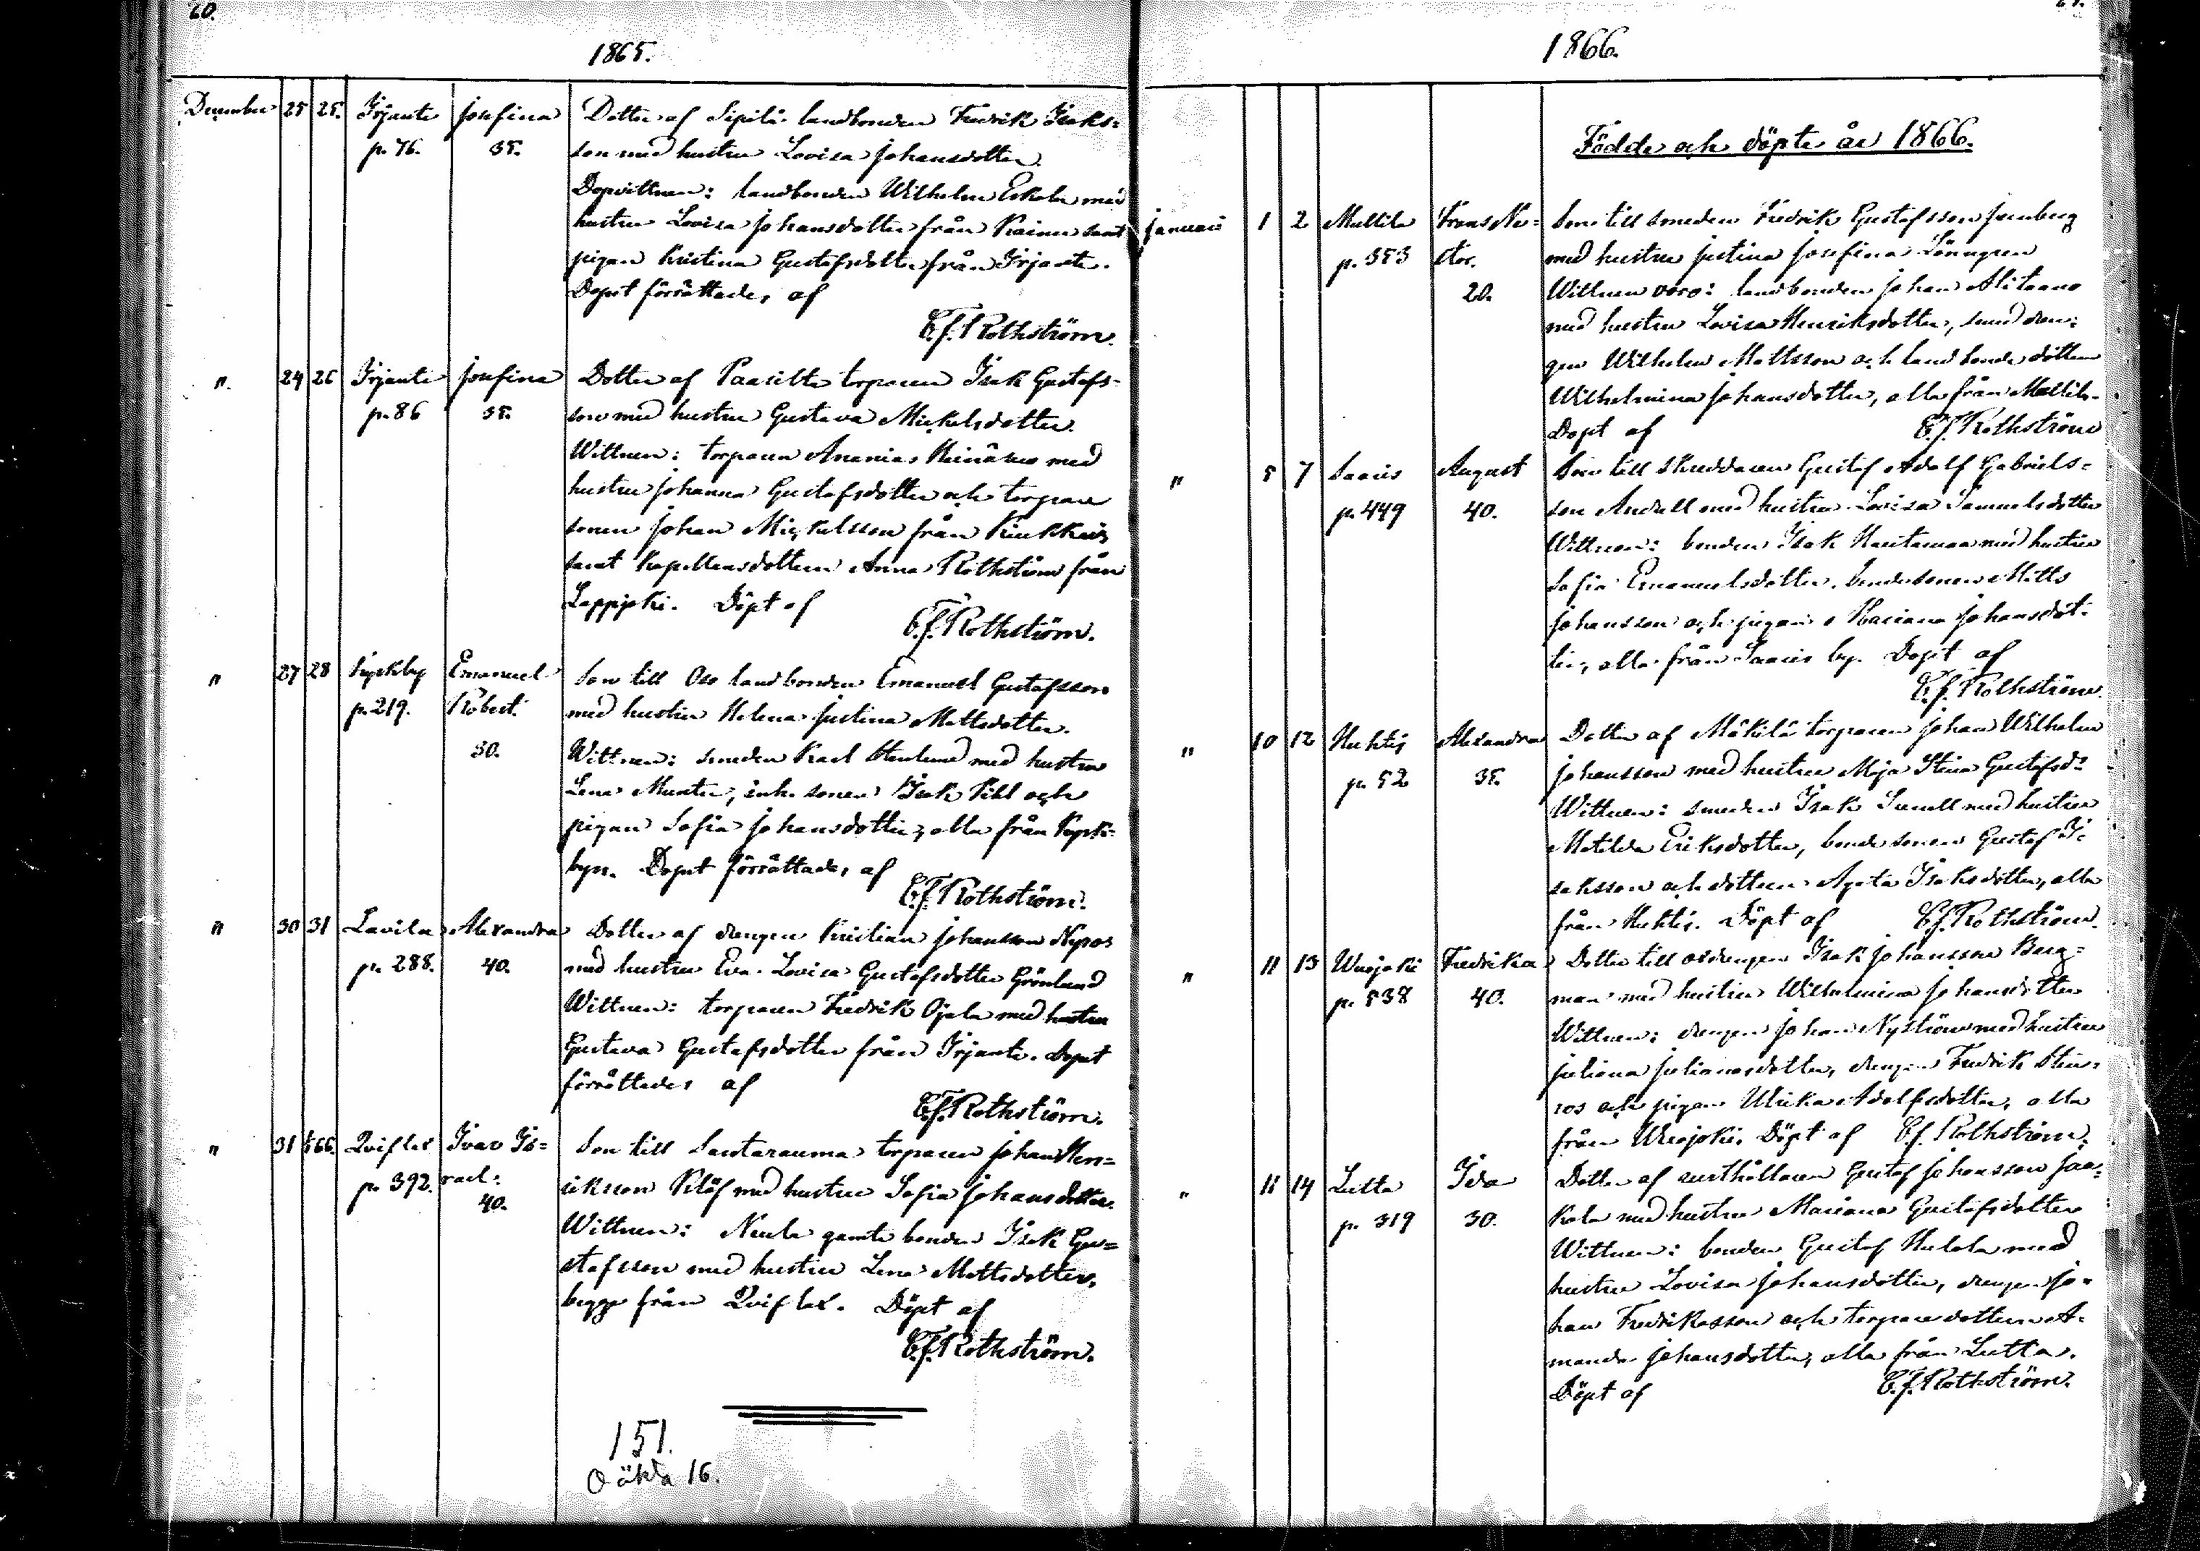 60.
1865.
December 25 25. Irjante Josefina Dotter af Sipilä landbonden Fredrik Isaks=
p. 76. 35. son med hustru Lovisa Johansdotter.
Dopvittnen: landbonden Wilhelm Eskola med
hustru Lovisa Johansdotter från Rainu samt
pigan Kristina Gustafsdotter från Irjante.
Dopet förrättades af
C.f. Rothström.
". 24 26 Irjante Josefina Dotter af Paasilta torparen Isak Gustafs-
p. 86 35. son med hustru Gustava Mickelsdotter.
Wittnen: torparen Ananias Heinänen med
hustru Johanna Gustafsdotter och torpare
sonen Johan Mickelsson från Kiukkais
samt Kapellansdottern Anna Rothström från
Lappijoki. Döpt af
C.f. Rothström.
" 27 28 Kyrkby Emanuel Son till Oso landbonden Emanuel Gustafsson
p. 219. Robert. med hustru Helena Justina Mattsdotter.
30. Wittnen: smeden Karl Stenlund med hustru
Lena Munter, inh. sonen Isak Kihl och
pigan Sofia Johansdotter, alla från Kyrko=
byn. Dopet förrättades af
C.f. Rothström.
" 30 31 Lavila Alexandra Dotter af drengen Kristian Johansson Nyroos
p. 288. 40. med hustru Eva Lovisa Gustafsdotter Grönlund
Wittnen: torparen Fredrik Ojala med hustru
Gustava Gustafsdotter från Irjante. Dopet
förrättades af
C.f. Rothström.
" 31 1/1 66. Qviflax Ivar Is= Son till Santarauma torparen Johan Hen=
p. 392. rael. riksson Klöf med hustru Sofia Johansdotter.
40.
Wittnen: Neula gamla bonden Isak Gu=
stafsson med hustru Lena Mattsdotter,
begge från Qviflax. Döpt af
C.f. Rothström.
151.
Oäkta 16.
1866.
Födde och döpte år 1866.
Januari 1 2 Mullila Frans Ne= Son till smeden Fredrik Gustafsson Jernberg
p. 353 stor. med hustru Justina Josefina Lönngren
20. Wittnen voro: landbonden Johan Alitaano
med hustru Lovisa Henriksdotter, smed dren=
gen Wilhelm Mattsson och landbonde dottern
Wilhelmina Johansdotter, alla från Mullila.
Döpt af C.f. Rothström
" 5 7 Saaris August Son till skreddaren Gustaf Adolf Gabriels=
p. 449 40. son Andell med hustru Lovisa Samuelsdotter
Wittnen: bonden Isak Hautamaa med hustru
Sofia Emanuelsdotter, bondesonen Matts
Johansson och pigan Mariana Johansdot=
ter, alla från Saaris by. Döpt af
C.f. Rothström.
" 10 12 Huhtis Alexandra Dotter af Mäkilä torparen Johan Wilhelm
p. 52 35. Johansson med hustru Maja Stina Gustafsdr
Wittnen: smeden Isak Sunell med hustru
Matilda Eriksdotter, bonde sonen Gustaf I=
saksson och dottern Agata Isaksdotter, alla
från Huhtis. Döpt af C.f. Rothström.
" 11 13 Wuojoki Fredrika Dotter till oxdrengen Isak Johansson Berg=
p. 538 40. man med hustru Wilhelmina Johansdotter
Wittnen: drengen Johan Nyström med hustru
Juliana Julianasdotter, drengen Fredrik Sten=
ros och pigan Ulrika Adolfsdotter, alla
från Wuojoki. Döpt af C.f. Rothström.
" 11 14 Lutta Ida Dotter af rusthållaren Gustaf Johansson Jaa=
p. 319 30. kola med hustru Mariana Gustafsdotter
Wittnen: bonden Gustaf Hulola med
hustru Lovisa Johansdotter, drengen Jo=
han Fredriksson och torparedottern A=
manda Johansdotter, alla från Lutta.
Döpt af C.f. Rothström.